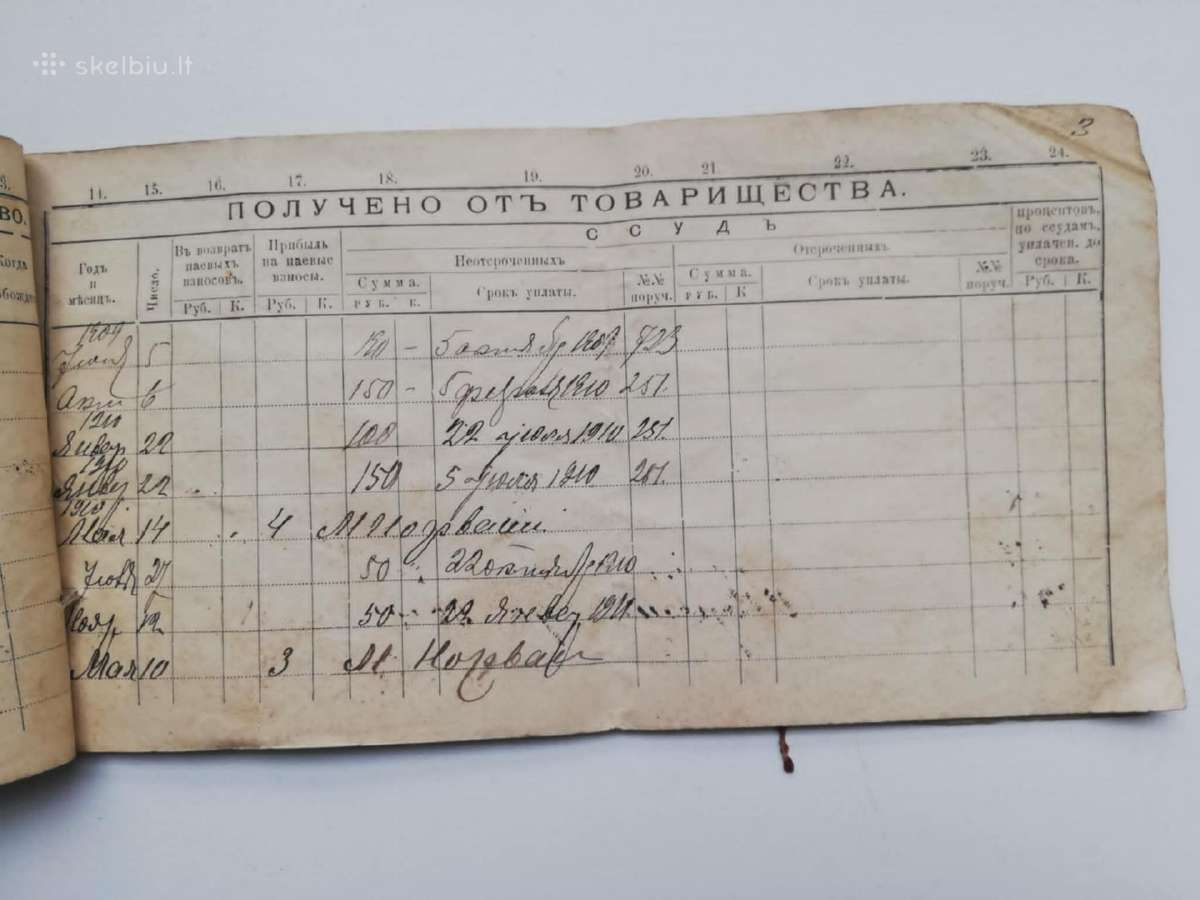 skelbiu.lt
3
14. 15. 16. 17. 18. 19. 20. 21 22. 23. 24.
ВО. ПОЛУЧЕНО ОТЪ ТОВАРИЩЕСТВА.
Годъ и мѣсяцъ.
Число.
Въ возвратъ
паевыхъ
взносовъ.
Руб. К.
Прибыль
на паевые
взносы.
Руб. К.
ССУДЪ
Неотсроченныхъ
Сумма.
РУБ. К.
Срокъ уплаты.
№№
поруч.
Отсроченныхъ
Сумма.
РУБ. К
Срокъ уплаты.
№№
поруч.
процентовъ,
по ссудамъ,
уплачен. до
срока.
Руб. К.
1909
5 150 — 5 октябр 1909 723
6 150 — 5 1910 251
1910
Январ 22 100 22 июля 1910 251.
1910
Январ 22 150 5 июля 1910 251.
1910
Мая 14 4 М Норвайш
27 50 22 октября 1910
Нояр. 12 50 22 Январ 1911
Мая 10 3 М. Норвайш